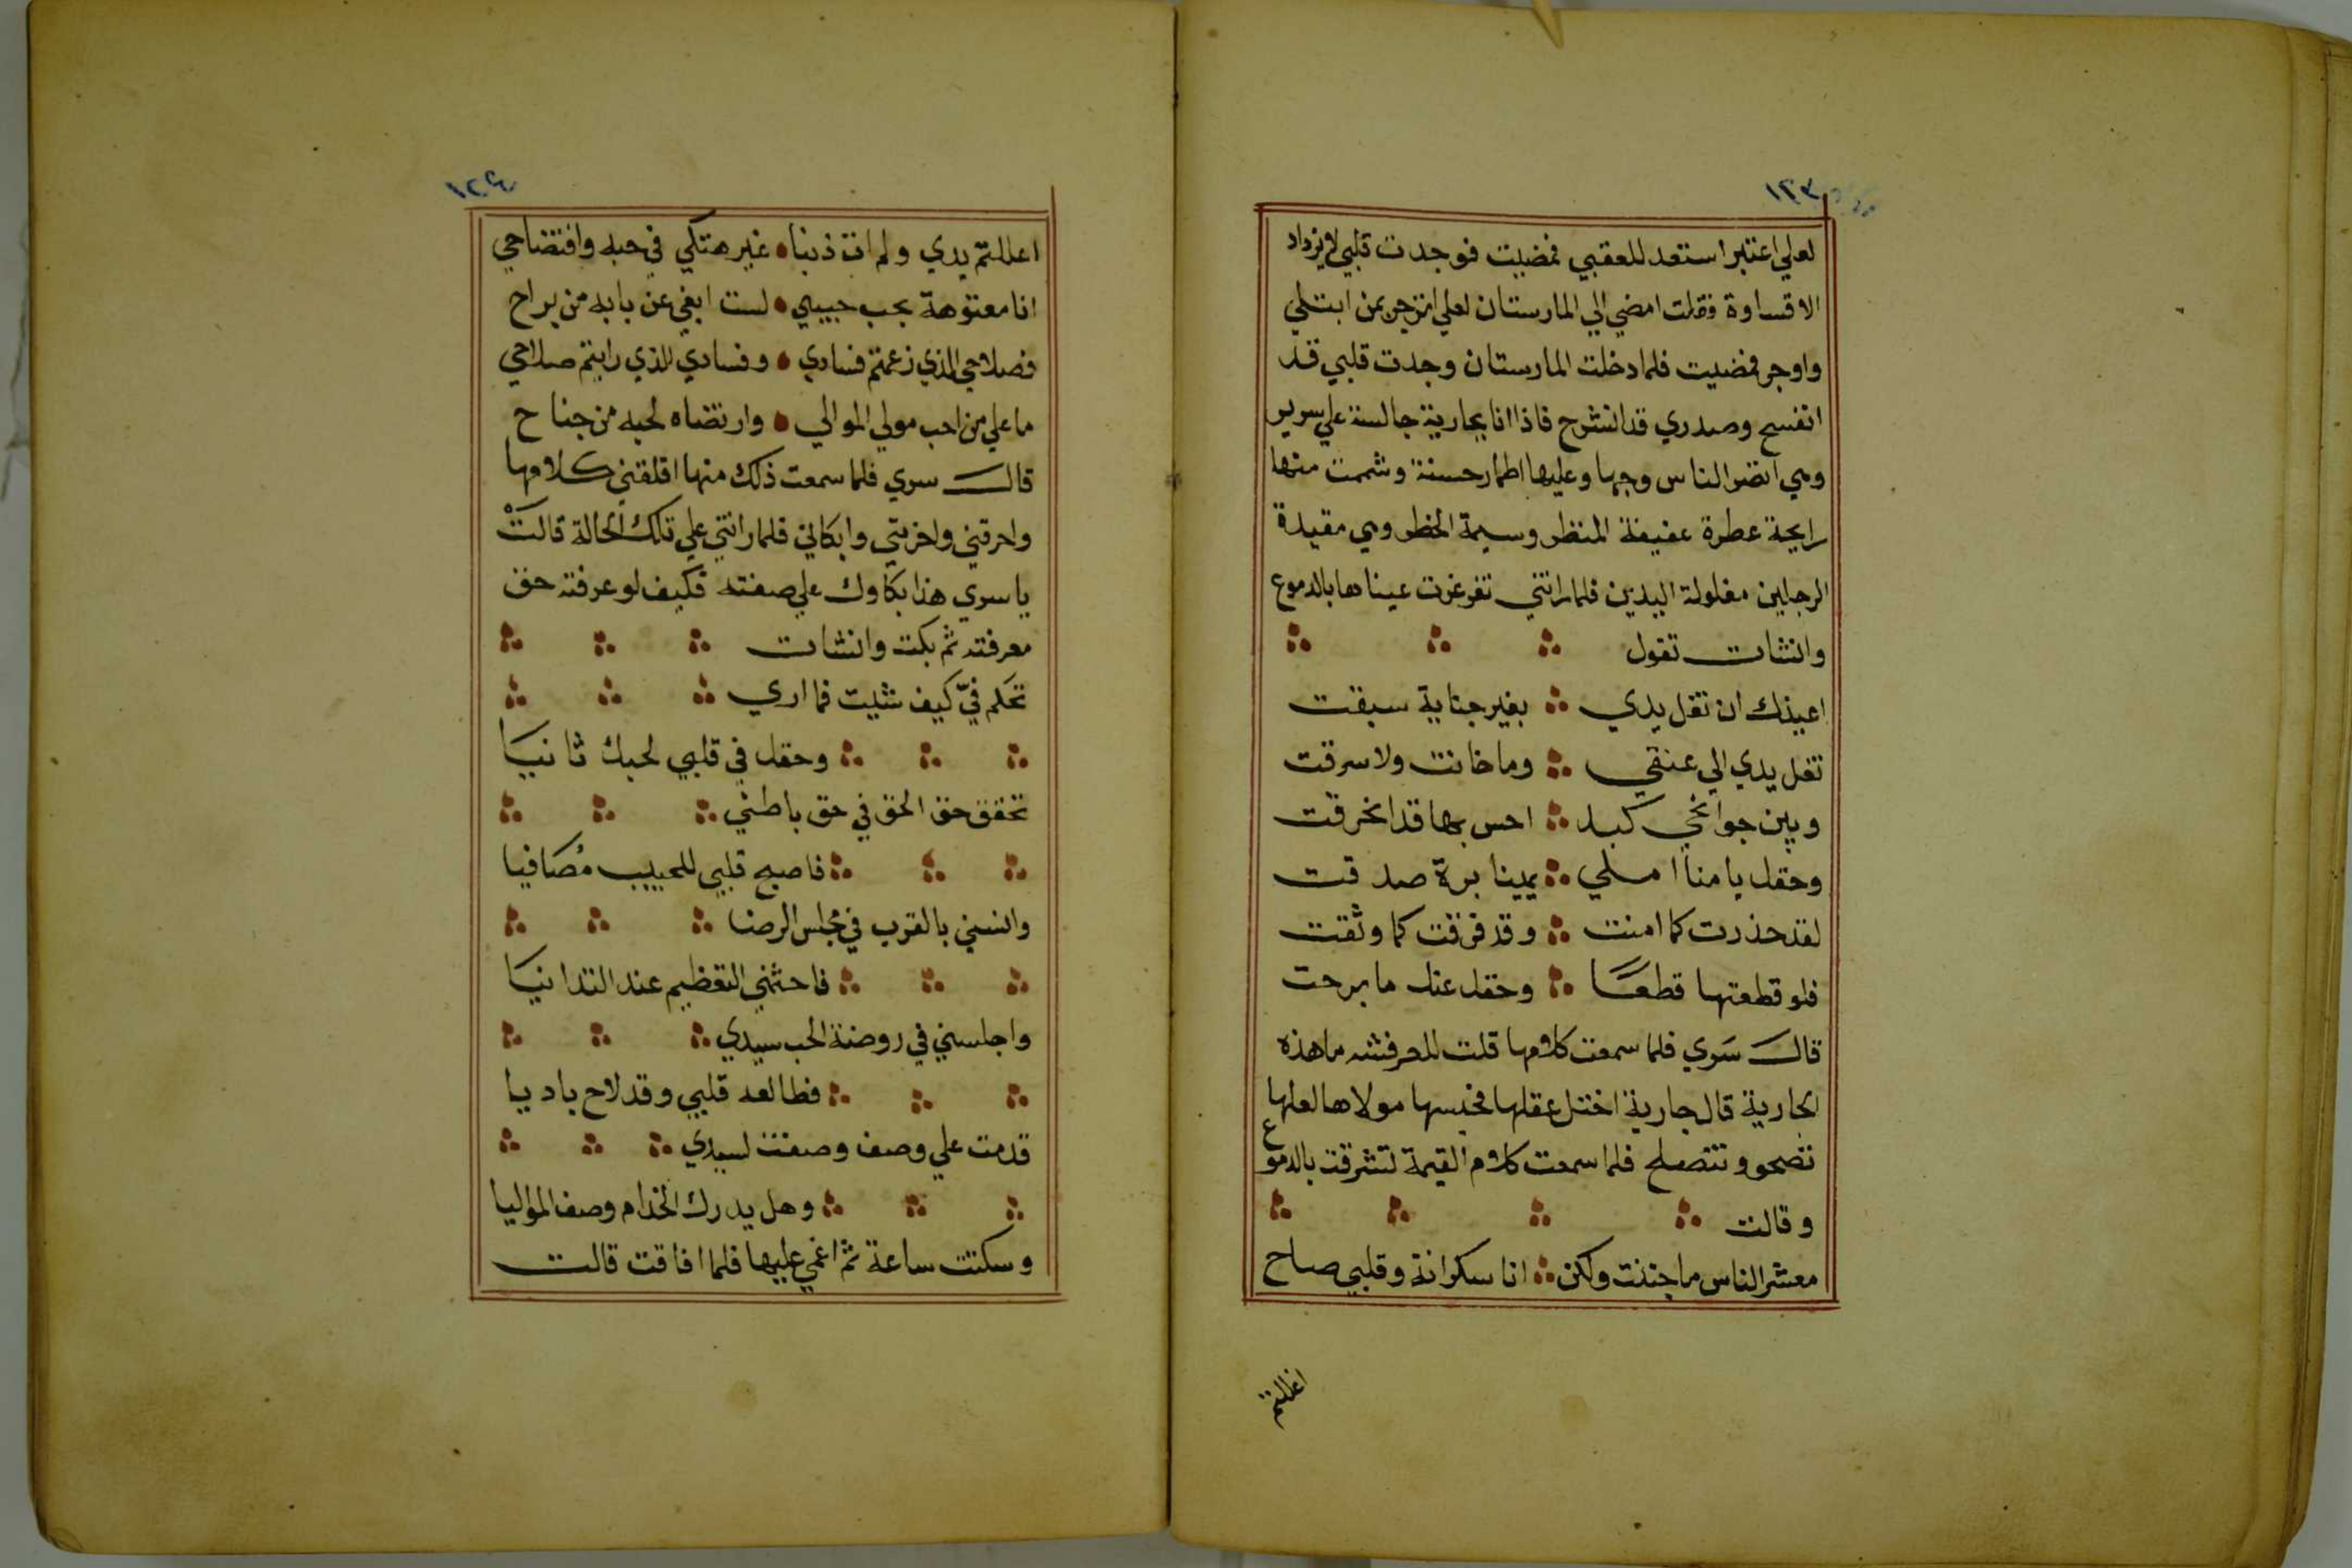 ١٢٣
لعلي اعتبر استعد للعقبي فمضيت فوجدت قلبي لا يزداد
الا قساوة فقلت امضي الي المارستان لعلي انزجر بمن ابتلي
واوجر فمضيت فلما دخلت المارستان وجدت قلبي قد
انفسح وصدري قد انشرح فاذا انا بجارية جالسة علي سرير
وهي انضر الناس وجها وعليها اطمار حسنة وشممت منها
رايحة عطرة عفيفة المنظر وسيمة الخطر وهي مقيدة
الرجلين مغلولة اليدين فلما راتني تغرغرت عيناها بالدموع
وانشات تقول
اعيذك ان تغل يدي ؞ بغير جناية سبقت
تغل يدي الي عنقي ؞ وما خانت ولا سرقت
وبين جوانحي كبد ؞ احس بها قد انحرقت
وحقك يا منا املي ؞ يمينا برة صدقت
لقد حذرت كما امنت ؞ وقد فرقت كما وثقت
فلو قطعتها قطعًا ؞ وحقك عنك ما برحت
قال سَري فلما سمعت كلامها قلت للعرفشه ما هذه
الجارية قال جارية اختل عقلها فحبسها مولاها لعلها
تصحو وتتصلح فلما سمعت كلام القيمة لتشرقت بالدموع
وقالت
معشر الناس ما جننت ولكن ؞ انا سكرانة وقلبي صاح
اغللتم
١٢٤
اغللتم يدي ولم ات ذنبا • غير هتكي في حبه وافتضاحي
انا معتوهة بحب حبيبي • لست ابغي عن بابه من براح
فصلاحي الذي زعمتم فسادي • وفسادي الذي رايتم صلاحي
ما علي من احب مولي الموالي • وارتضاه لحبه من جناح
قال سري فلما سمعت ذلك منها اقلقني كلامها
واحرقني واخرني وابكاني فلما راتني علي تلك الحالة قالتْ
يا سري هذا بكاوك علي صفته فكيف لو عرفته حق
معرفته ثم بكت وانشات
تحكم فيّ كيف شيت فما اري
وحقك في قلبي لحبك ثانيَا
تحقق حق الحق في حق باطني
فاصبح قلبي للحبيب مُصَافيا
وانسني بالقرب في مجلس الرضا
فاحشمني التعظيم عند التدانيَا
واجلسني في روضة الحب سيدي
فطالعه قلبي وقد لاح باديا
قدمت علي وصف وصفت لسيدي
وهل يدرك الخدام وصف المواليا
وسكتت ساعة ثم اغمي عليها فلما افاقت قالت